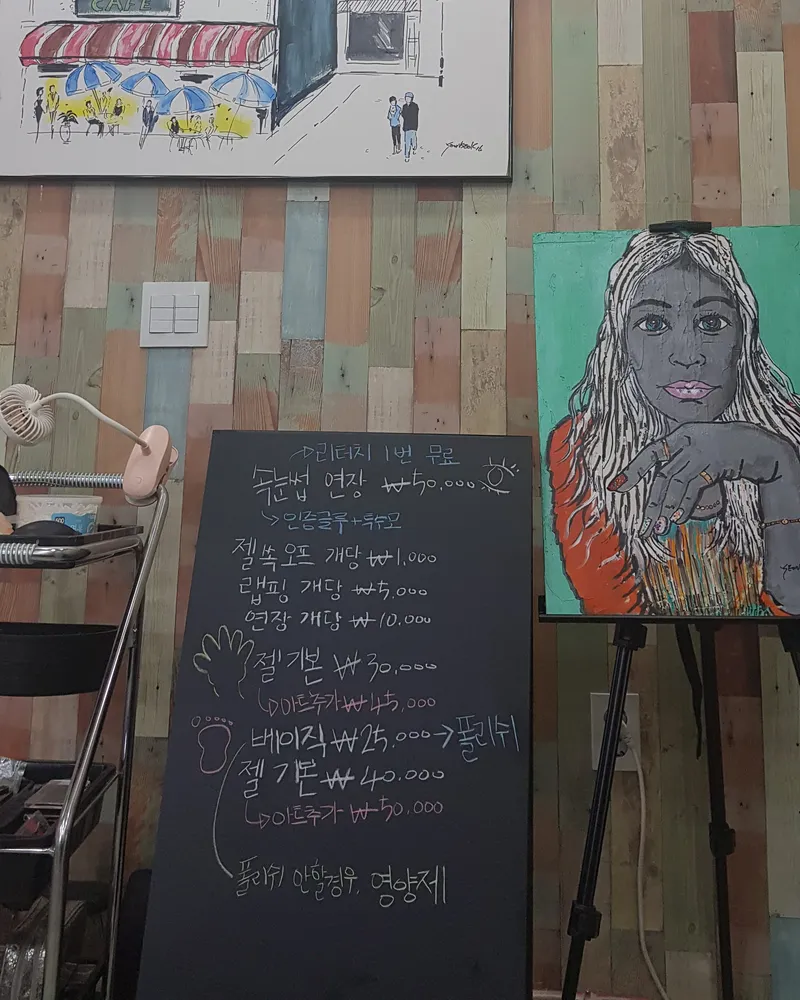 CAFE
리터치 1번 무료
속눈썹 연장 ₩50,000
인증글루+특수모
젤쏙오프 개당 ₩1,000
랩핑 개당 ₩5,000
연장 개당 ₩10,000
젤 기본 ₩30,000
아트추가 ₩45,000
베이직 ₩25,000→폴리쉬
젤 기본 ₩40,000
아트추가 ₩50,000
폴리쉬 안할경우, 영양제